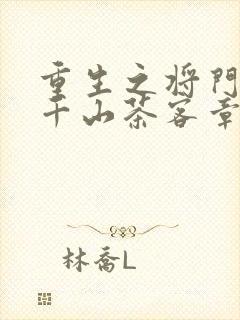 重生之将门
千山茶客章
林乔L